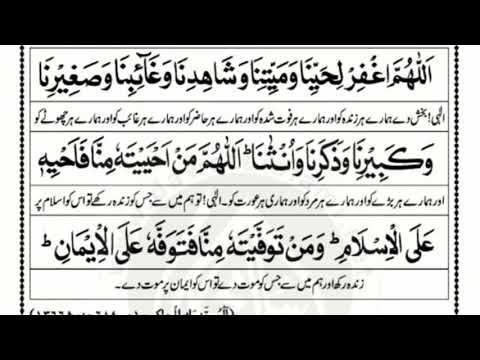 اَللّٰهُمَّ اغْفِرْ لِحَيِّنَا وَمَيِّتِنَا وَشَاهِدِنَا وَغَآئِبِنَا وَصَغِيْرِنَا
الٰہی! بخش دے ہمارے ہر زندہ کو اور ہمارے ہر فوت شدہ کو اور ہمارے ہر حاضر کو اور ہمارے ہر غائب کو اور ہمارے ہر چھوٹے کو
وَكَبِيْرِنَا وَذَكَرِنَا وَاُنْثٰنَا ؕ اَللّٰهُمَّ مَنْ اَحْيَيْتَهٗ مِنَّا فَاَحْيِهٖ
اور ہمارے ہر بڑے کو اور ہمارے ہر مرد کو اور ہماری ہر عورت کو۔ الٰہی! تو ہم میں سے جس کو زندہ رکھے تو اس کو اسلام پر
عَلَى الْاِسْلَامِ ؕ وَمَنْ تَوَفَّيْتَهٗ مِنَّا فَتَوَفَّهٗ عَلَى الْاِيْمَانِ ؕ
زندہ رکھ اور ہم میں سے جس کو موت دے تو اس کو ایمان پر موت دے۔